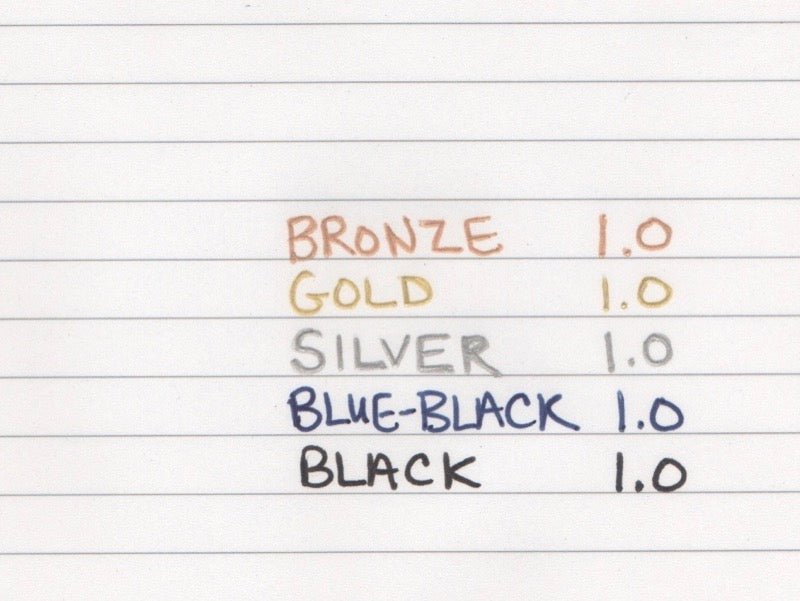 BRONZE 1.0
GOLD 1.0
SILVER 1.0
BLUE-BLACK 1.0
BLACK 1.0